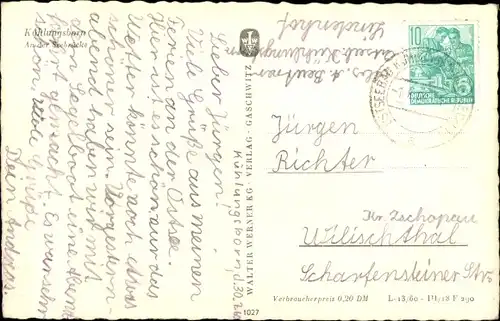 Kühlungsborn
An der Seebrücke
Kühlungsborn, d. 30.
Lieber Jürgen!
Viele Grüße aus meinen
Ferien an der Ostsee.
Hier ist es schön, nur das
Wetter könnte noch etwas
schöner sein. Vorgestern
abend haben wir mit
dem Segelboot eine
gemacht. Es war sehr
schön. Viele Grüße
Dein Andreas
WALTER WERNER KG · VERLAG · GASCHWITZ
1027
Lindenhof
10
DEUTSCHE
DEMOKRATISCHE REPUBLIK
Jürgen
Richter
Kr. Zschopau
Wilischthal
Scharfensteiner Str.
Verbraucherpreis 0,20 DM
L-15/60 - III/18 F 290